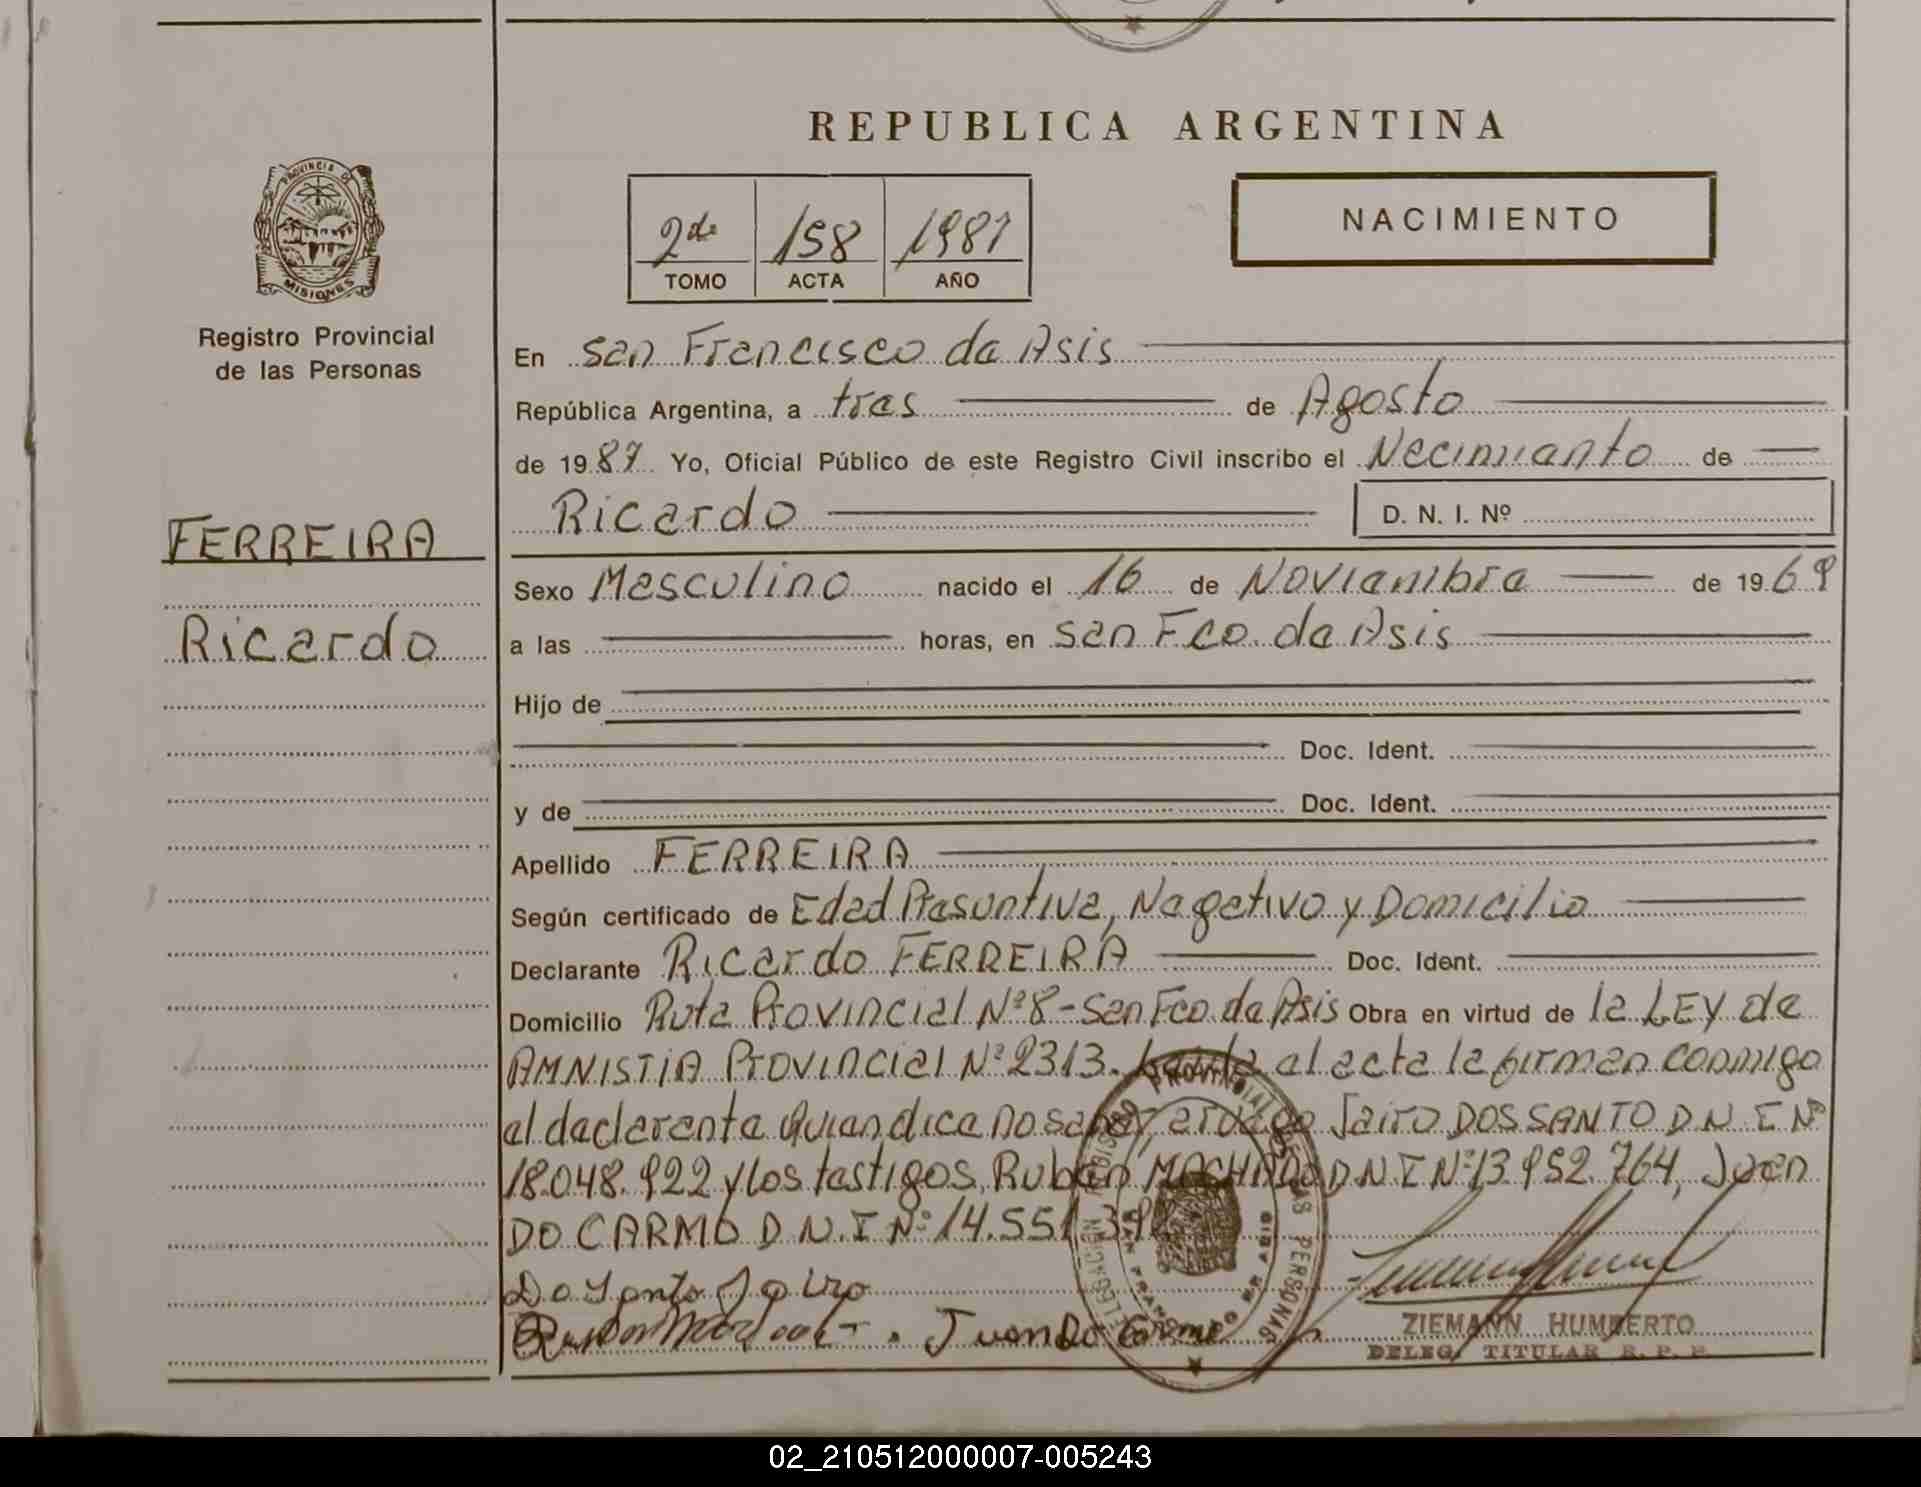 REPUBLICA ARGENTINA
PROVINCIA DE
MISIONES
Registro Provincial
de las Personas
2do 158 1987
TOMO ACTA AÑO
NACIMIENTO
En San Francisco de Asis
República Argentina, a tres de Agosto
de 1987 Yo, Oficial Público de este Registro Civil inscribo el Nacimiento de
Ricardo D. N. I. Nº
FERREIRA
Ricardo
Sexo Masculino nacido el 16 de Noviembre de 1969
a las horas, en San Fco. de Asis
Hijo de
Doc. Ident.
y de Doc. Ident.
Apellido FERREIRA
Según certificado de Edad Presuntiva, Negativo y Domicilio
Declarante Ricardo FERREIRA Doc. Ident.
Domicilio Ruta Provincial Nº 8 - San Fco. de Asis Obra en virtud de la LEY de
AMNISTIA Provincial Nº 2313. Leída el acta la firman conmigo
el declarante quien dice no saber, a ruego Jairo DOS SANTO D.N.I Nº
18.048.922 y los testigos, Ruben MACHADO D.N.I Nº 13.952.764, Juan
DO CARMO D.N.I Nº 14.551.39
Do Santo Jairo
Juan Do Carmo
ZIEMANN HUMBERTO
DELEG. TITULAR R. P. P.
02_210512000007-005243